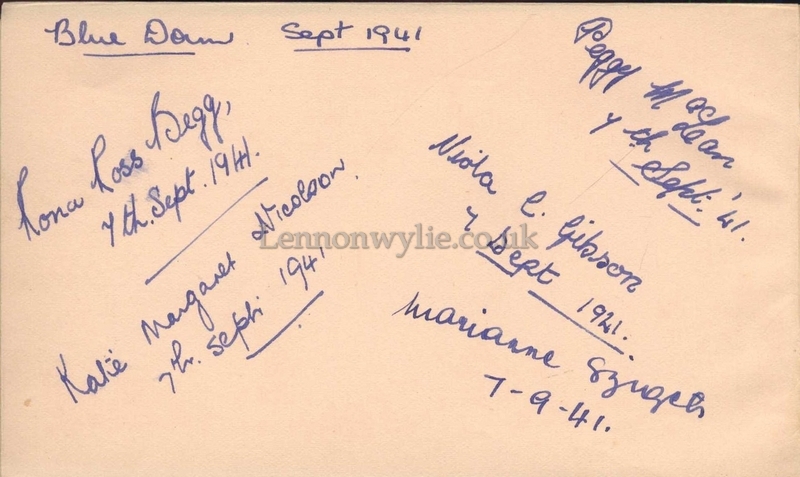 Blue Dawn Sept 1941
Rona Ross Begg,
7th. Sept. 1941.
Katie Margaret Nicolson.
7th. Sept. 1941
Peggy MacLean
7th
Sept. '41.
C. Gibson
7 Sept 1941.
Marianne
7-9-41.
Lennonwylie.co.uk